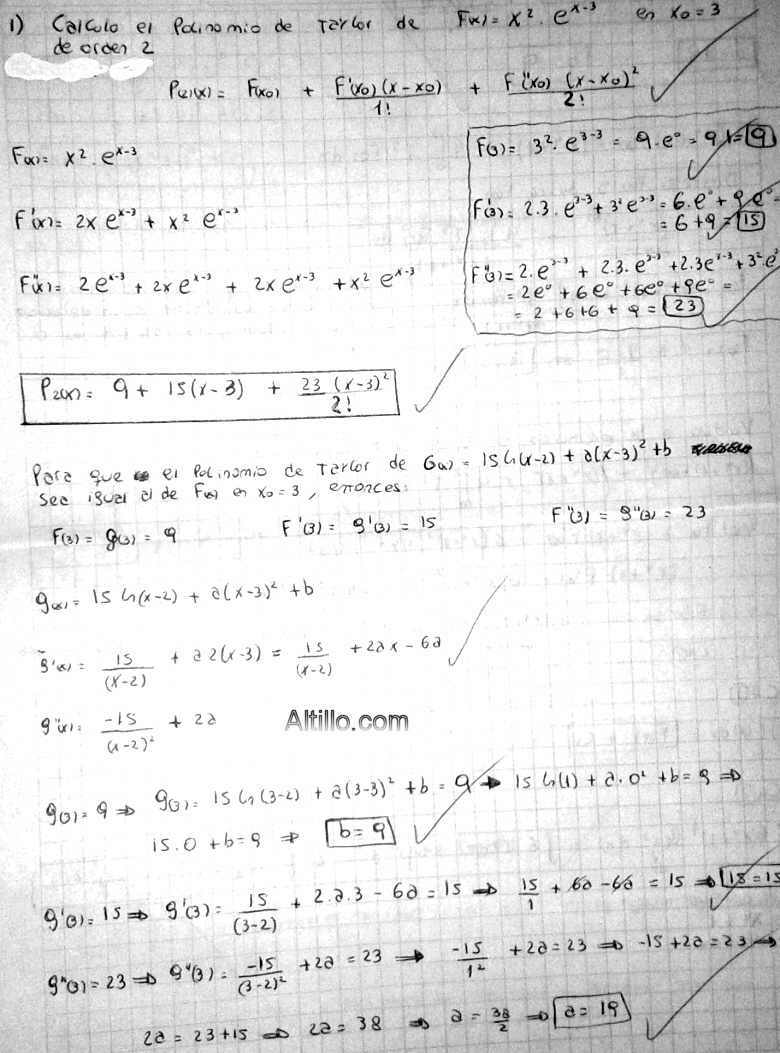 1) Calculo el Polinomio de Taylor de F(x) = x² · e^(x-3) en x₀ = 3
de orden 2
P₂(x) = F(x₀) + F'(x₀)(x-x₀)/1! + F''(x₀)(x-x₀)²/2!
F(x) = x² · e^(x-3)
F'(x) = 2x e^(x-3) + x² e^(x-3)
F''(x) = 2e^(x-3) + 2x e^(x-3) + 2x e^(x-3) + x² e^(x-3)
F(3) = 3² · e^(3-3) = 9 · e⁰ = 9 · 1 = 9
F'(3) = 2.3 · e^(3-3) + 3² e^(3-3) = 6 · e⁰ + 9 e⁰ =
= 6 + 9 = 15
F''(3) = 2 · e^(3-3) + 2.3 · e^(3-3) + 2.3 e^(x-3) + 3² e⁰
= 2e⁰ + 6e⁰ + 6e⁰ + 9e⁰ =
= 2 + 6 + 6 + 9 = 23
P₂(x) = 9 + 15(x-3) + 23(x-3)²/2!
Para que el Polinomio de Taylor de G(x) = 15 Ln(x-2) + a(x-3)² + b
sea igual al de F(x) en x₀ = 3, entonces:
F(3) = g(3) = 9 F'(3) = g'(3) = 15 F''(3) = g''(3) = 23
g(x) = 15 Ln(x-2) + a(x-3)² + b
g'(x) = 15/(x-2) + a2(x-3) = 15/(x-2) + 2ax - 6a
g''(x) = -15/(x-2)² + 2a
Altillo.com
g(3) = 9 ⇒ g(3) = 15 Ln(3-2) + a(3-3)² + b = 9 ⇒ 15 Ln(1) + a.0² + b = 9 ⇒
15.0 + b = 9 ⇒ b = 9
g'(3) = 15 ⇒ g'(3) = 15/(3-2) + 2.a.3 - 6a = 15 ⇒ 15/1 + 6a - 6a = 15 ⇒ 15 = 15
g''(3) = 23 ⇒ g''(3) = -15/(3-2)² + 2a = 23 ⇒ -15/1² + 2a = 23 ⇒ -15 + 2a = 23 ⇒
2a = 23 + 15 ⇒ 2a = 38 ⇒ a = 38/2 ⇒ a = 19